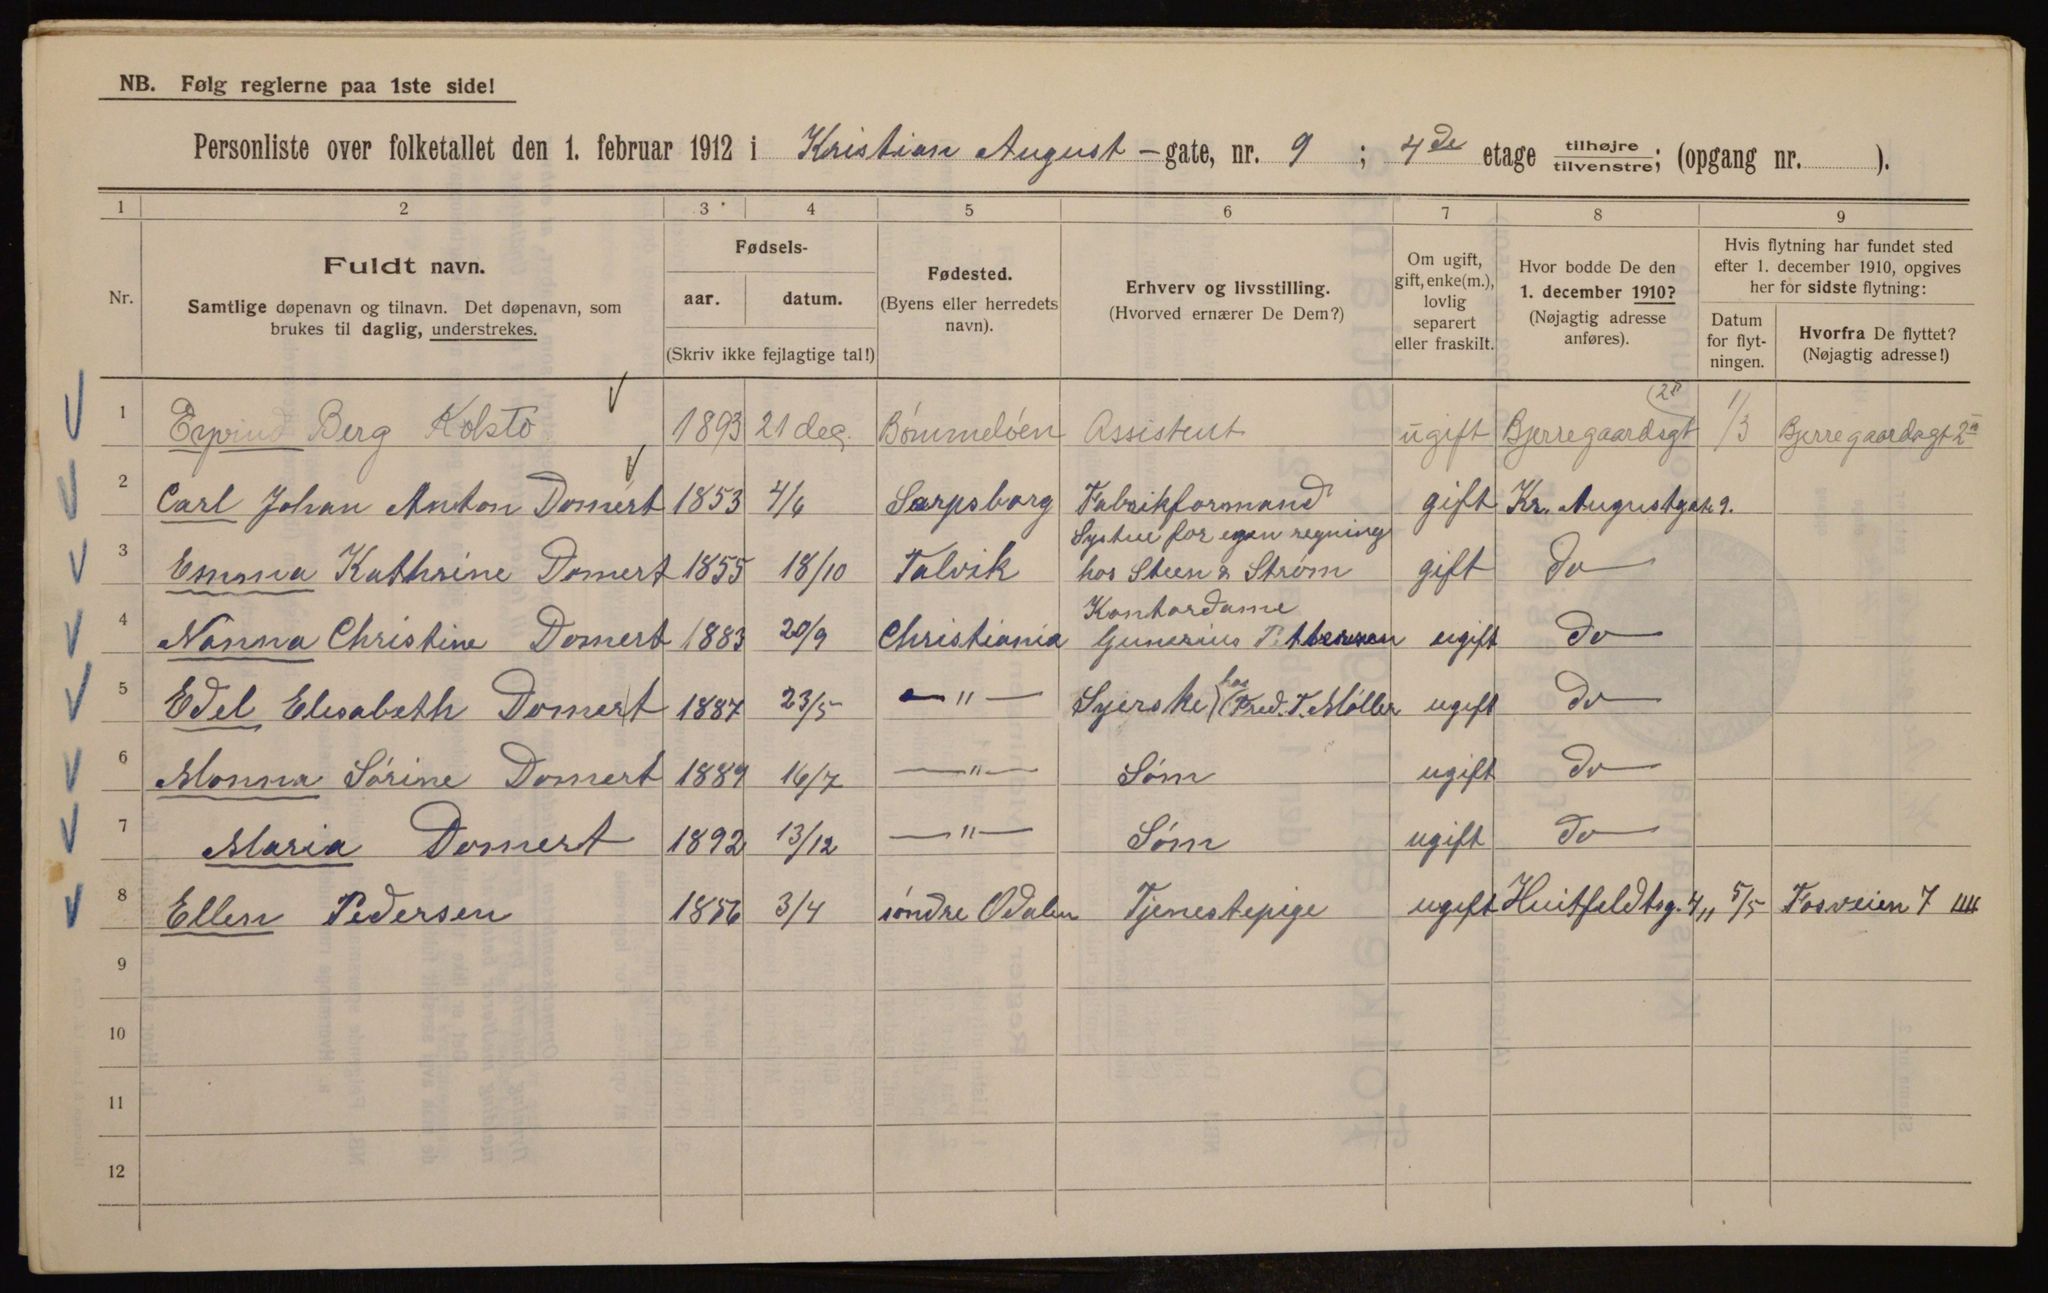 NB. Følg reglerne paa 1ste side!
Personliste over folketallet den 1. februar 1912 i Kristian August-gate, nr. 9; 4de etage tilhøjre/tilvenstre; (opgang nr. ).
1 2 3 4 5 6 7 8 9
Nr.
Fuldt navn.
Samtlige døpenavn og tilnavn. Det døpenavn, som
brukes til daglig, understrekes.
Fødsels-
aar. datum.
(Skriv ikke fejlagtige tal!)
Fødested.
(Byens eller herredets
navn).
Erhverv og livsstilling.
(Hvorved ernærer De Dem?)
Om ugift,
gift, enke(m.),
lovlig
separert
eller fraskilt.
Hvor bodde De den
1. december 1910?
(Nøjagtig adresse
anføres).
Hvis flytning har fundet sted
efter 1. december 1910, opgives
her for sidste flytning:
Datum
for flyt-
ningen.
Hvorfra De flyttet?
(Nøjagtig adresse!)
1 Eyvind Berg Kolstö 1893 21 deg. Bömmelöen Assistent ugift Bjerregaardsgt 1/3 Bjerregaardsgt
2 Carl Johan Anton Domert 1853 4/6 Sarpsborg Fabrikformand gift Kr. Augustgate 9.
3 Emma Kathrine Domert 1855 18/10 Talvik Systue for egen regning
hos Steen & Strøm gift do
4 Nanna Christine Domert 1883 20/9 Christiania Kontordame
Gunerius Pettersen ugift do
5 Edel Elisabeth Domert 1887 23/5 — " — Syerske hos Fred. T. Møller ugift do
6 Monna Sörine Domert 1889 16/7 — " — Søm ugift do
7 Maria Domert 1892 13/12 — " — Søm ugift do
8 Ellen Pedersen 1856 3/4 søndre Odalen Tjenestepige ugift Huitfeldtsg. 4 5/5 Fosveien 7
9
10
11
12